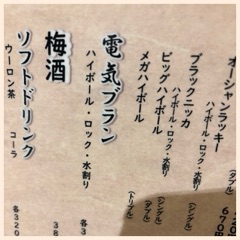 オーシャンラッキー
ハイボール・ロック・水割り
(ダブル)
670
ブラックニッカ
ハイボール・ロック・水割り
(シングル)
ビッグハイボール
(ダブル)
メガハイボール
(トリプル)
電気ブラン
ハイボール・ロック・水割り
各3
梅酒
38
ソフトドリンク
ウーロン茶
コーラ
各320